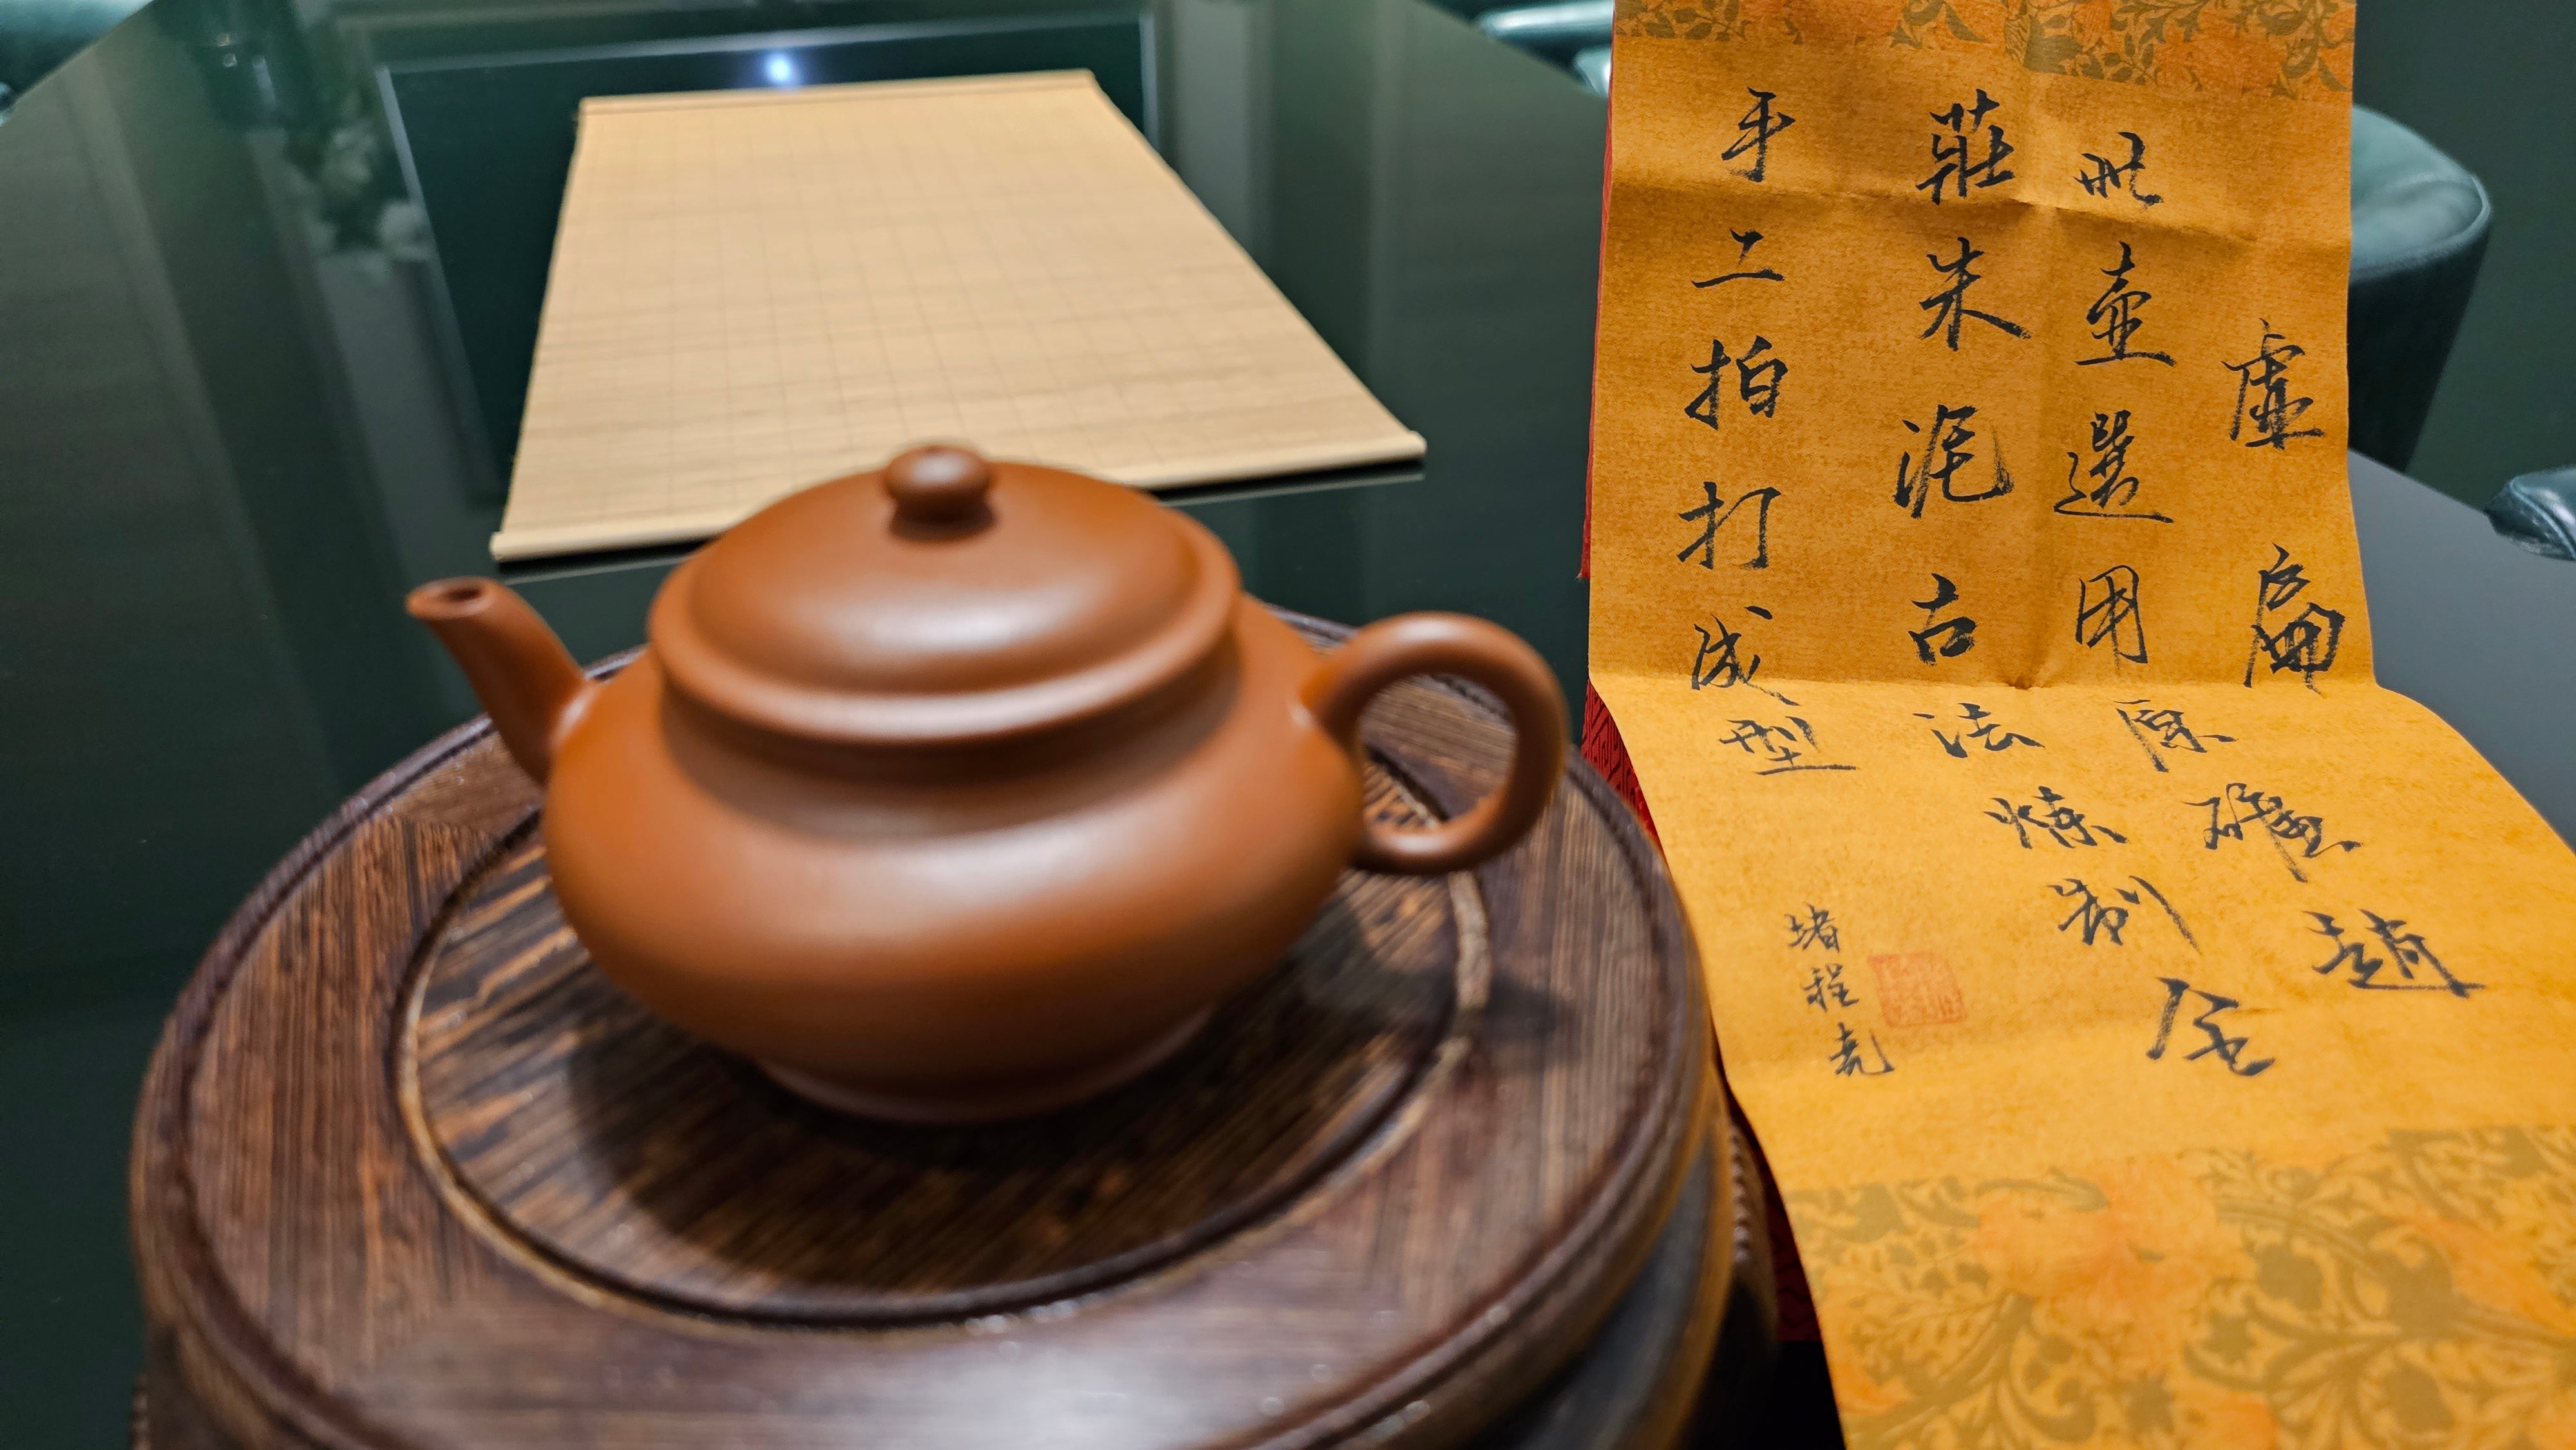 虛扁
此壺選用原礦趙
莊朱泥古法煉製全
手工拍打成型
堵程堯